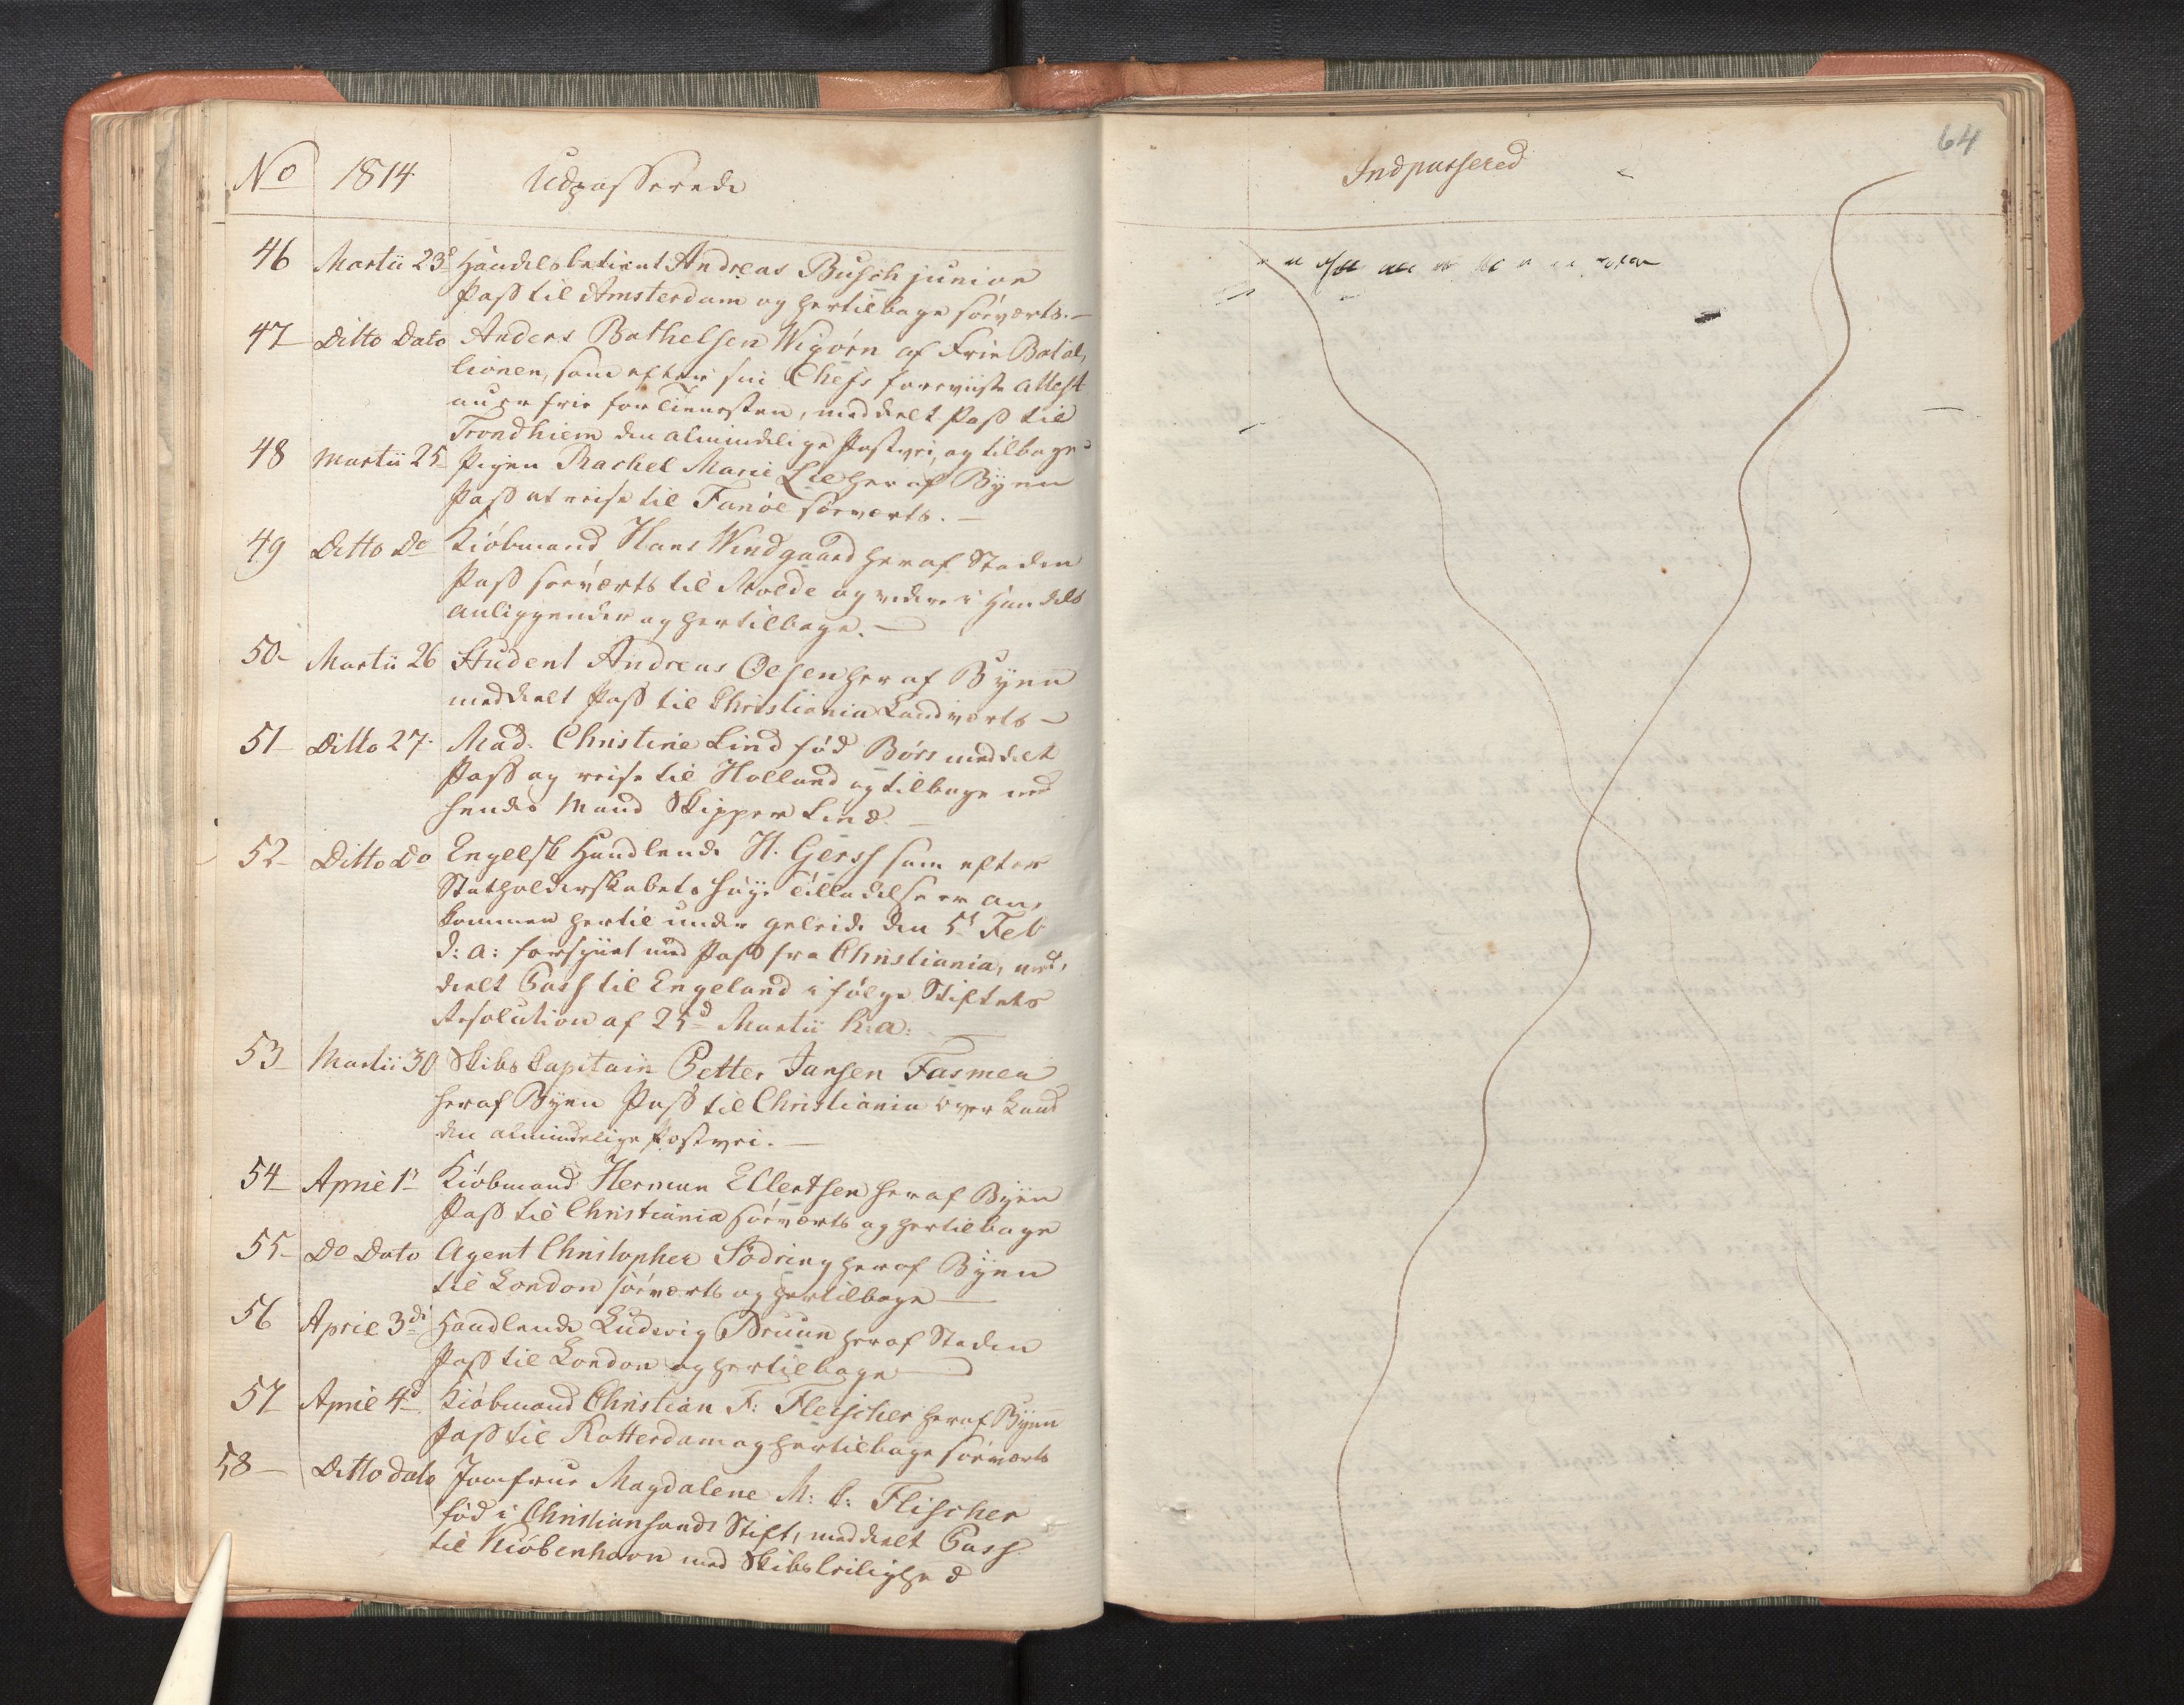 No 1814. Udpasserede
46 Martii 23d Handelsbetient Andreas Busch junior
Pass til Amsterdam og hertilbage søeværts. —
47 Ditto Dato Anders Bathelsen Wigørn af Frie Batal,
lionen, som efter sin Chefs foreviiste Attest
nu er frie for Tienesten, meddeelt Pass til
Trondhiem den almindelige Postvei, og tilbage
48 Martii 25 Pigen Rachel Marie Lie her af Byen
Pass at reise til Fanöe søeværts. —
49 Ditto Do Kiøbmand Hans Windgaard her af Staden
Pass søeværts til Molde og videre i Handels
anliggender og hertilbage. —
50 Martii 26 Student Andreas Oelsen her af Byen
meddeelt Pass til Christiania Landværts —
51 Ditto 27. Mad. Christine Lind fød Börs meddeelt
Pass og reise til Holland og tilbage med
hendes Mand Skipper Lind —
52 Ditto Do Engelsk Handlende H. Gerss som efter
Statholderskabets høye Tilladelse er an,
kommen hertil under geleide den 5t Feb
d: a: forsynet med Pass fra Christiania, med,
deelt Pass til Engeland i følge Stiftets
Resolution af 25d Martii h: a:
53 Martii 30 Skibs Capitain Petter Jansen Fasmer
her af Byen Pass til Christiania over Land
den almindelige Postvei. —
54 April 1t Kiøbmand Herman Ellertsen her af Byen
Pass til Christiania søeværts og hertilbage
55 Do Dato Agent Christopher Södring her af Byen
til London søeværts og hertilbage —
56 April 3di Handlende Ludevig Bruun her af Staden
Pass til London og hertilbage —
57 April 4d Kiøbmand Christian F: Fleischer her af Byen
Pass til Rotterdam og hertilbage søeværts
58 Ditto dato Jomfrue Magdalene M: C: Flischer
fød i Christiansands Stift, meddeelt Pass
til Kiöbenhavn med Skibsleilighed
Indpassered
64